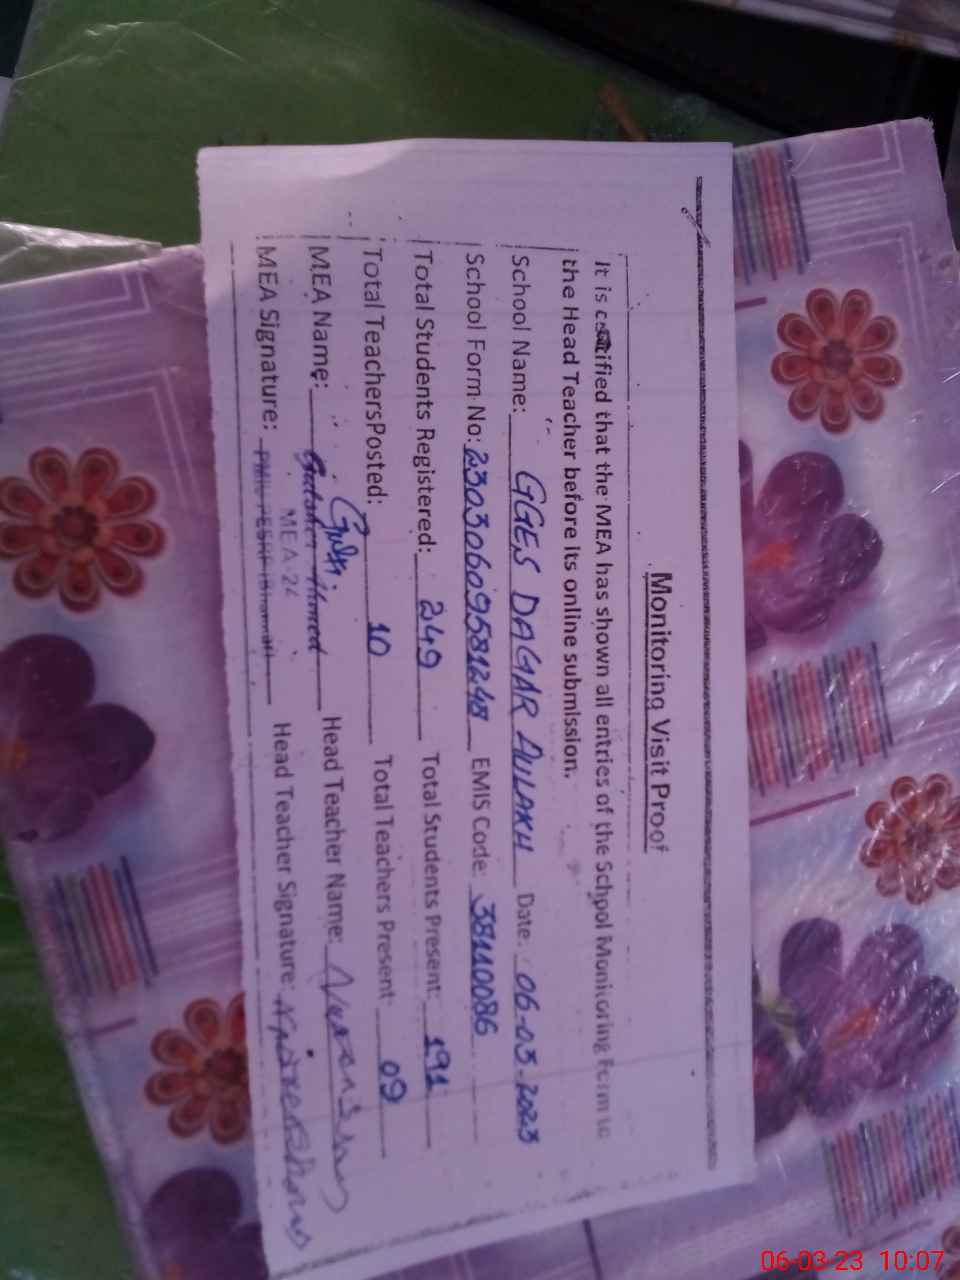 Monitoring Visit Proof
It is certified that the MEA has shown all entries of the School Monitoring Form to
the Head Teacher before its online submission.
School Name: GGES DAGAR AULAKH Date: 06-03-2023
School Form No: 2303060958124 EMIS Code: 38110086
Total Students Registered: 249 Total Students Present: 191
Total TeachersPosted: 10 Total Teachers Present: 09
MEA Name: Head Teacher Name:
MEA-26
MEA Signature: Head Teacher Signature:
06-03-23 10:07